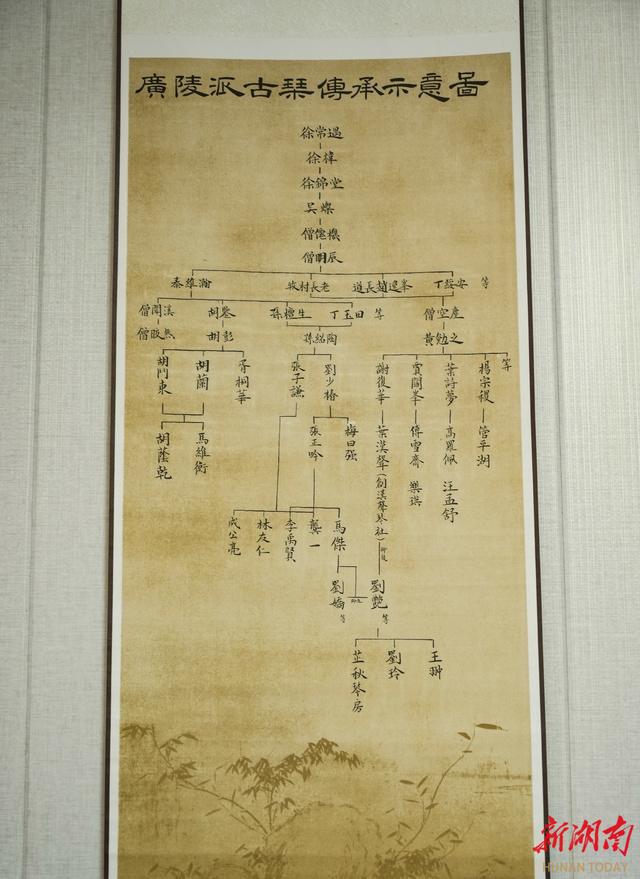 廣陵派古琴傳承示意圖
徐常遇
徐禕
徐錦堂
吳燦
僧僊機
僧明辰
秦維瀚
牧村長老
道長趙逸峯
丁綏安
等
僧聞溪
胡鉴
孫檀生
丁玉田
等
僧空塵
僧啟無
胡彭
孫紹陶
黃勉之
胡鬥東
胡蘭
胥桐華
張子謙
劉少椿
謝復華
賈闊峯
葉詩夢
楊宗稷
等
胡蔭乾
馬維衡
張正吟
梅曰强
葉漢聲(創漢聲琴社)
傅雪齋
樂瑛
高羅佩
汪孟舒
管平湖
成公亮
林友仁
李禹賢
龔一
馬傑
劉嬌
等
劉艷
等
芷秋琴房
劉玲
王翀
新湖南
HUNAN TODAY